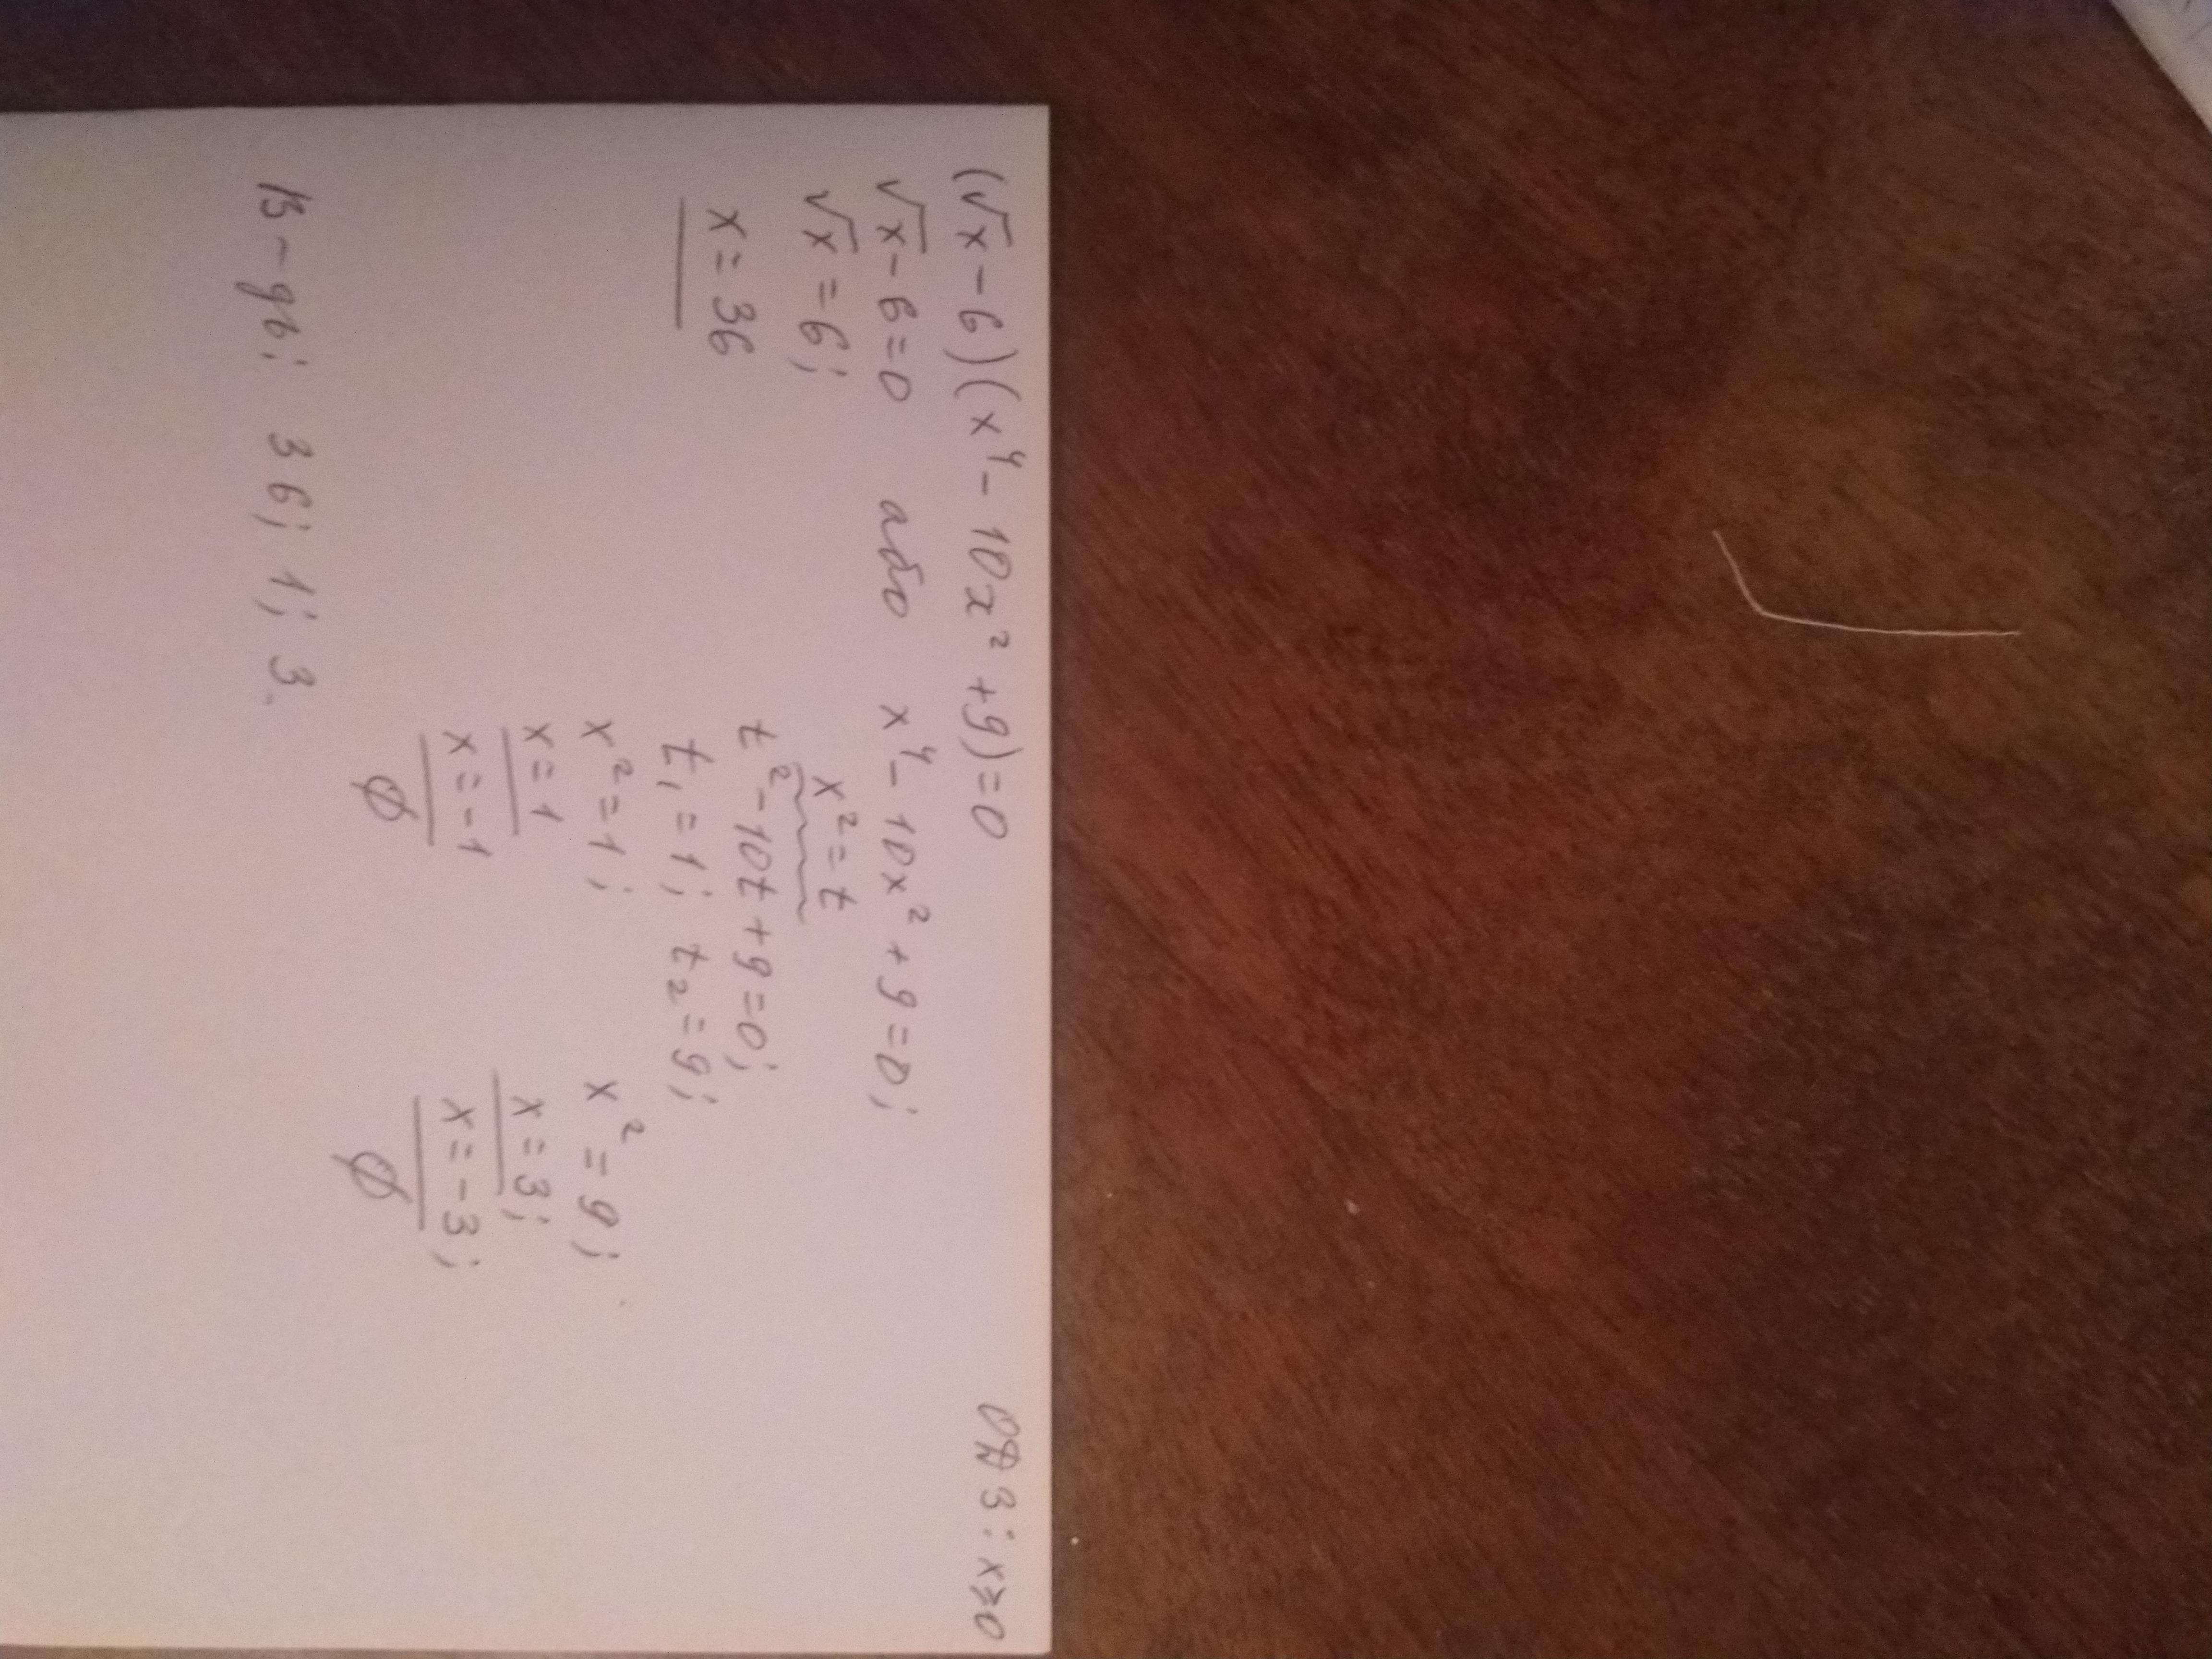 (√x - 6)(x⁴ - 10x² + 9) = 0 ОДЗ: x ≥ 0
√x - 6 = 0 або x⁴ - 10x² + 9 = 0;
√x = 6; x² = t
x = 36 t² - 10t + 9 = 0;
t₁ = 1; t₂ = 9;
x² = 1; x² = 9;
x = 1 x = 3;
x = -1 x = -3;
∅ ∅
В-дь: 36; 1; 3.